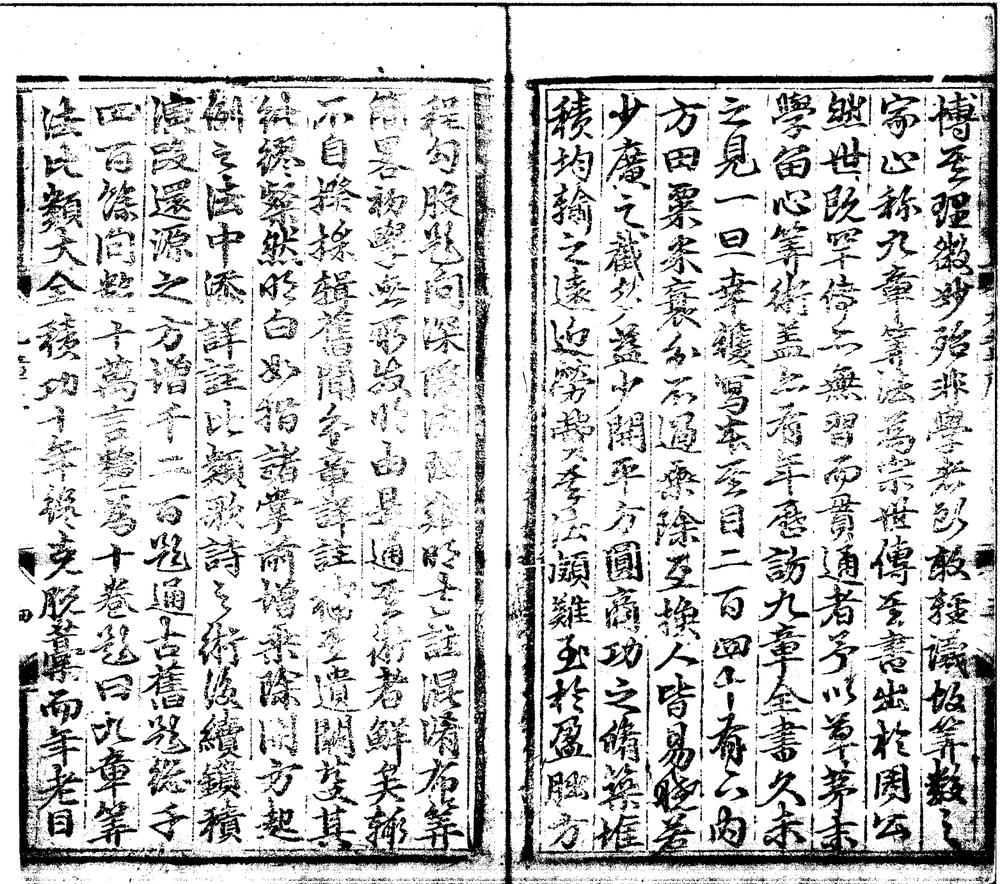 博其理微妙殆非學者所敢輕議故筭數之
家止称九章筭法爲宗世傳其書出於周公
然世既罕傳而無習而貫通者予以草茅末
學留心筭術盖亦有年歷訪九章全書久未
之見一旦幸獲寫本其目二百四十有六内
方田粟米衰分不過乘除互換人皆易曉若
少廣之截多益少開平方圓商功之脩築堆
積均輸之遠近勞費其法頗難至於盈朒方
程勾股題問深隱法理難明古註混淆布筭
簡畧初學無所發明由是通其術者鮮矣輒
不自揆採輯舊聞分章詳註補其遺闕芟其
紕繆粲然明白如指諸掌前增乘除開方起
例之法中添詳註比類歌詩之術後續鎖積
演段還源之方增千二百題通古舊題總千
四百餘問數十萬言釐爲十卷題曰九章筭
法比類大全積功十年終克脱藁而年老目